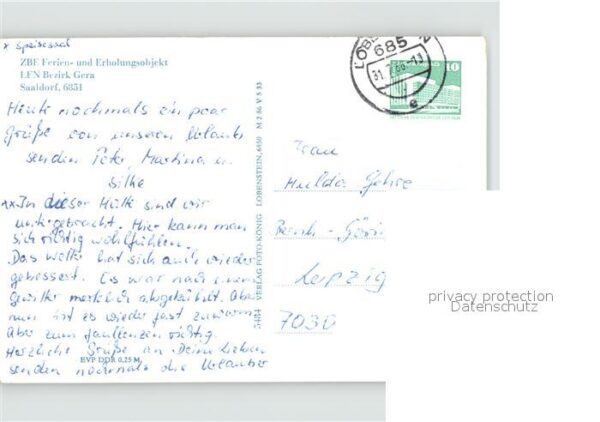 x Speisesaal
ZBE Ferien- und Erholungsobjekt
LFN Bezirk Gera
Saaldorf, 6851
Heute nochmals ein paar
Grüße von unseren Urlaub
senden Peter, Martina u.
Silke
xx In dieser Hütte sind wir
untergebracht. Hier kann man
sich richtig wohlfühlen.
Das Wetter hat sich auch wieder
gebessert. Es war nach einem
Gewitter merklich abgekühlt. Aber
nun ist es wieder fast zu warm.
Aber zum faullenzen richtig.
Herzliche Grüße an Deine Lieben
senden nochmals die Urlauber
EVP DDR 0,25 M
5484 VERLAG FOTO-KÖNIG LOBENSTEIN, 6850 M 2 86 V 5 33
685
10
e
Frau
Hulda
Leipzig
7030
privacy protection
Datenschutz